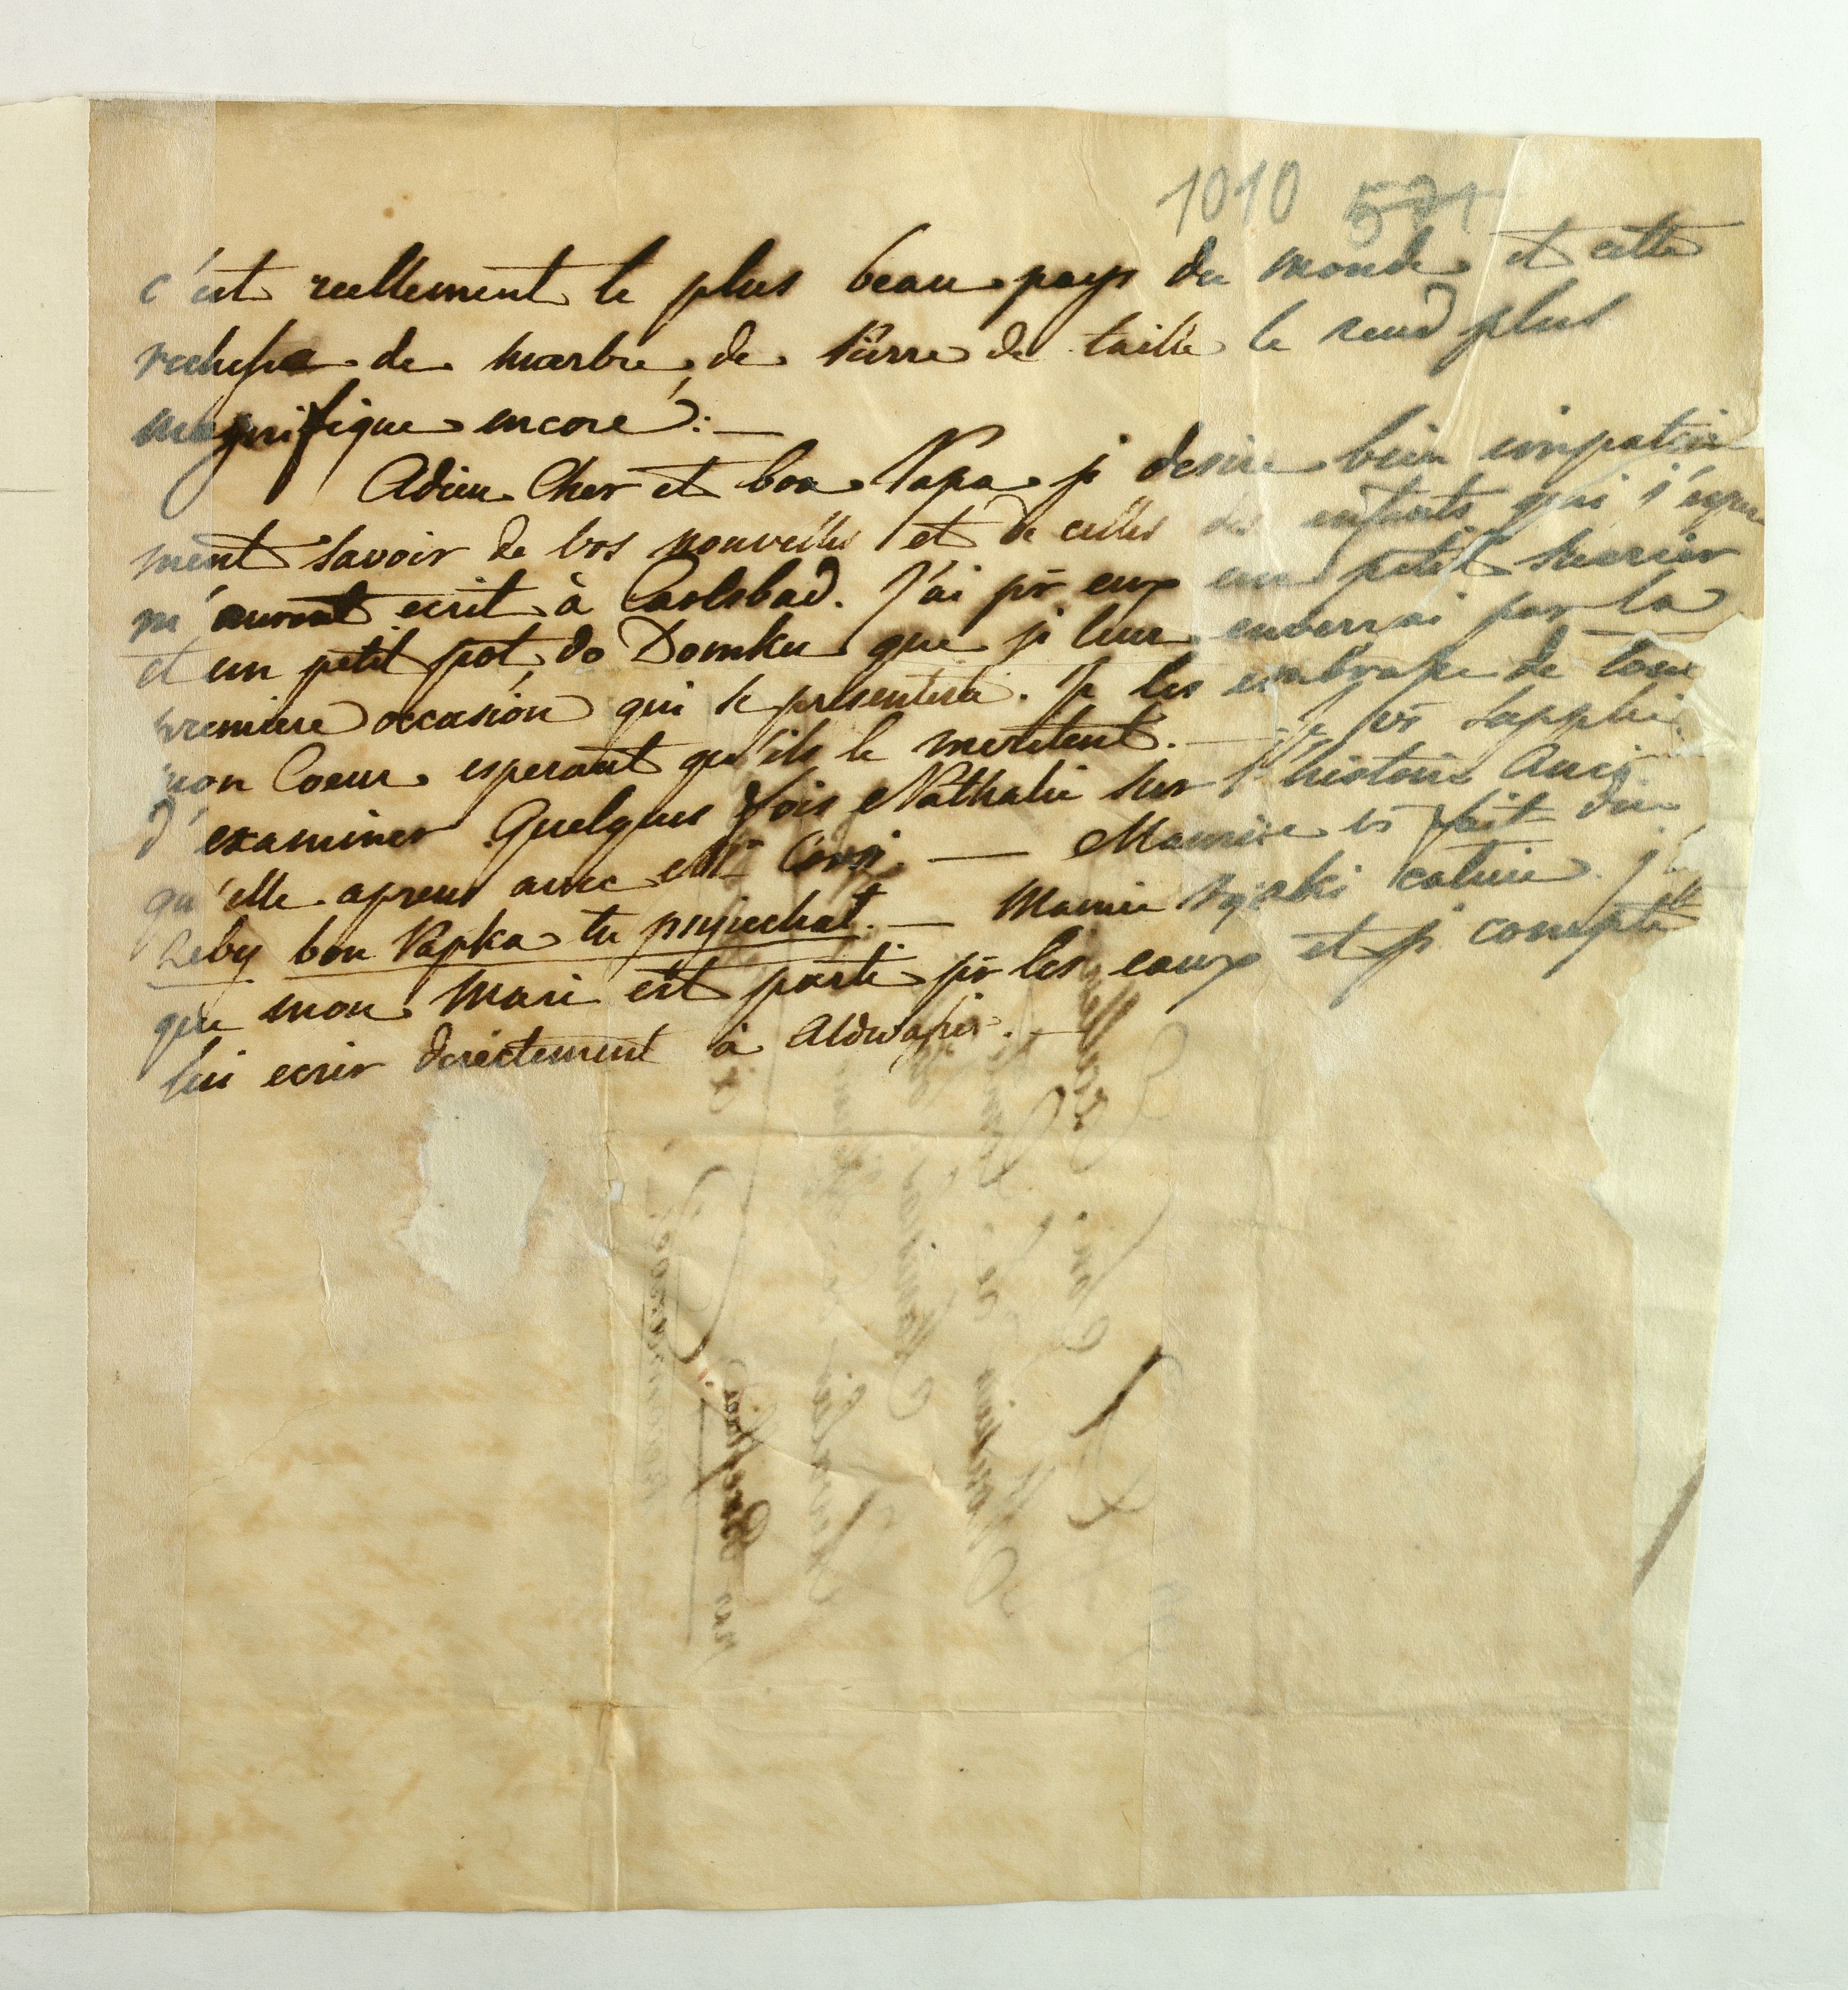 1010 571
c'est reellement le plus beau pays du monde et cette
richesse de marbre, de Pierre de taille le rend plus
magnifique encore. —
Adieu Cher et bon Papa je desire bien impatiem
ment savoir de vos nouvelles et de celles des enfants qui j'espere
m'auront ecrit à Carlsbad. J'ai pr eux un petit
et un petit pot do Domku que je leur enverrai par la
premiere occasion qui se presentera. Je les embrasse de tout
mon Coeur esperant qu'ils le meritent. — Je vs supplie
d'examiner Quelques fois Nathalie sur l'histoire Anc.
qu'elle aprend avec Mr Corsi. — Maurice vs fait dire
zeby bon Papka tu przyiechał. — Mamie rączki caluie. je
que mon Mari est parti pr les eaux et je compte
lui ecrir directement à Aldwasser. —